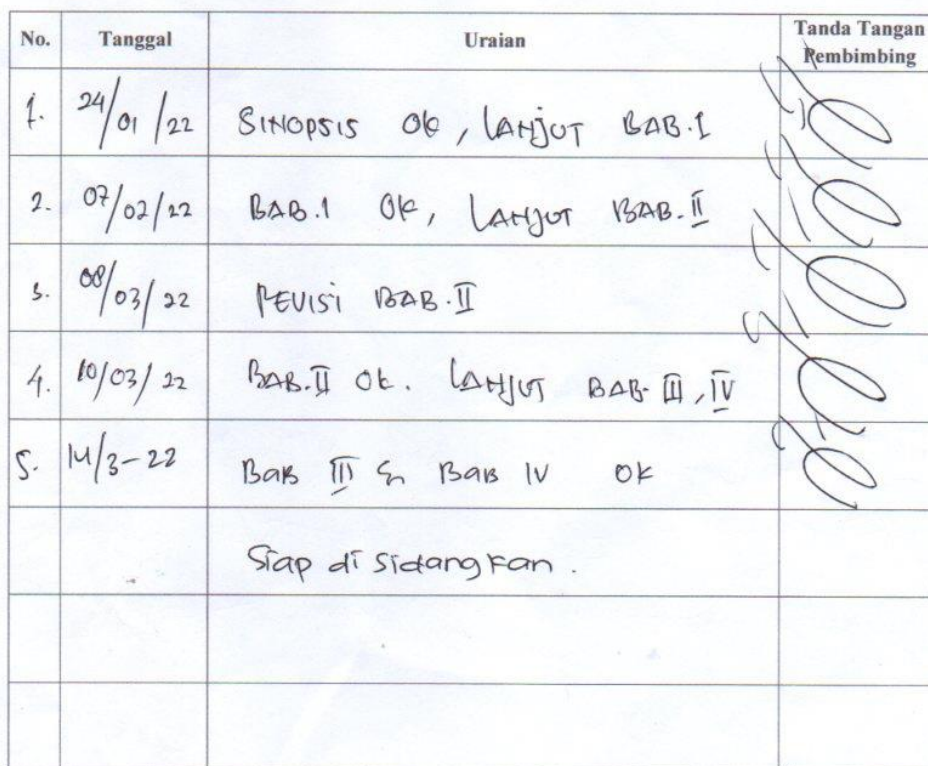 No. Tanggal Uraian Tanda Tangan
Pembimbing
1. 24/01/22 SINOPSIS OK, LANJUT BAB.I
2. 07/02/22 BAB.I OK, LANJUT BAB.II
3. 08/03/22 REVISI BAB.II
4. 10/03/22 BAB.II OK. LANJUT BAB.III, IV
5. 14/3-22 BAB III & BAB IV OK
Siap di sidangkan.